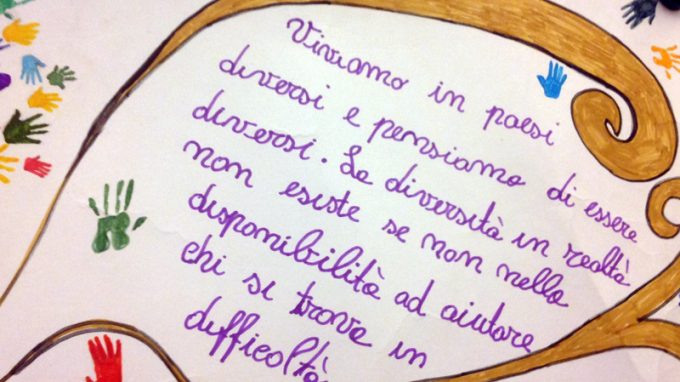 Viviamo in paesi
diversi e pensiamo di essere
diversi. La diversità in realtà
non esiste se non nella
disponibilità ad aiutare
chi si trova in
difficoltà